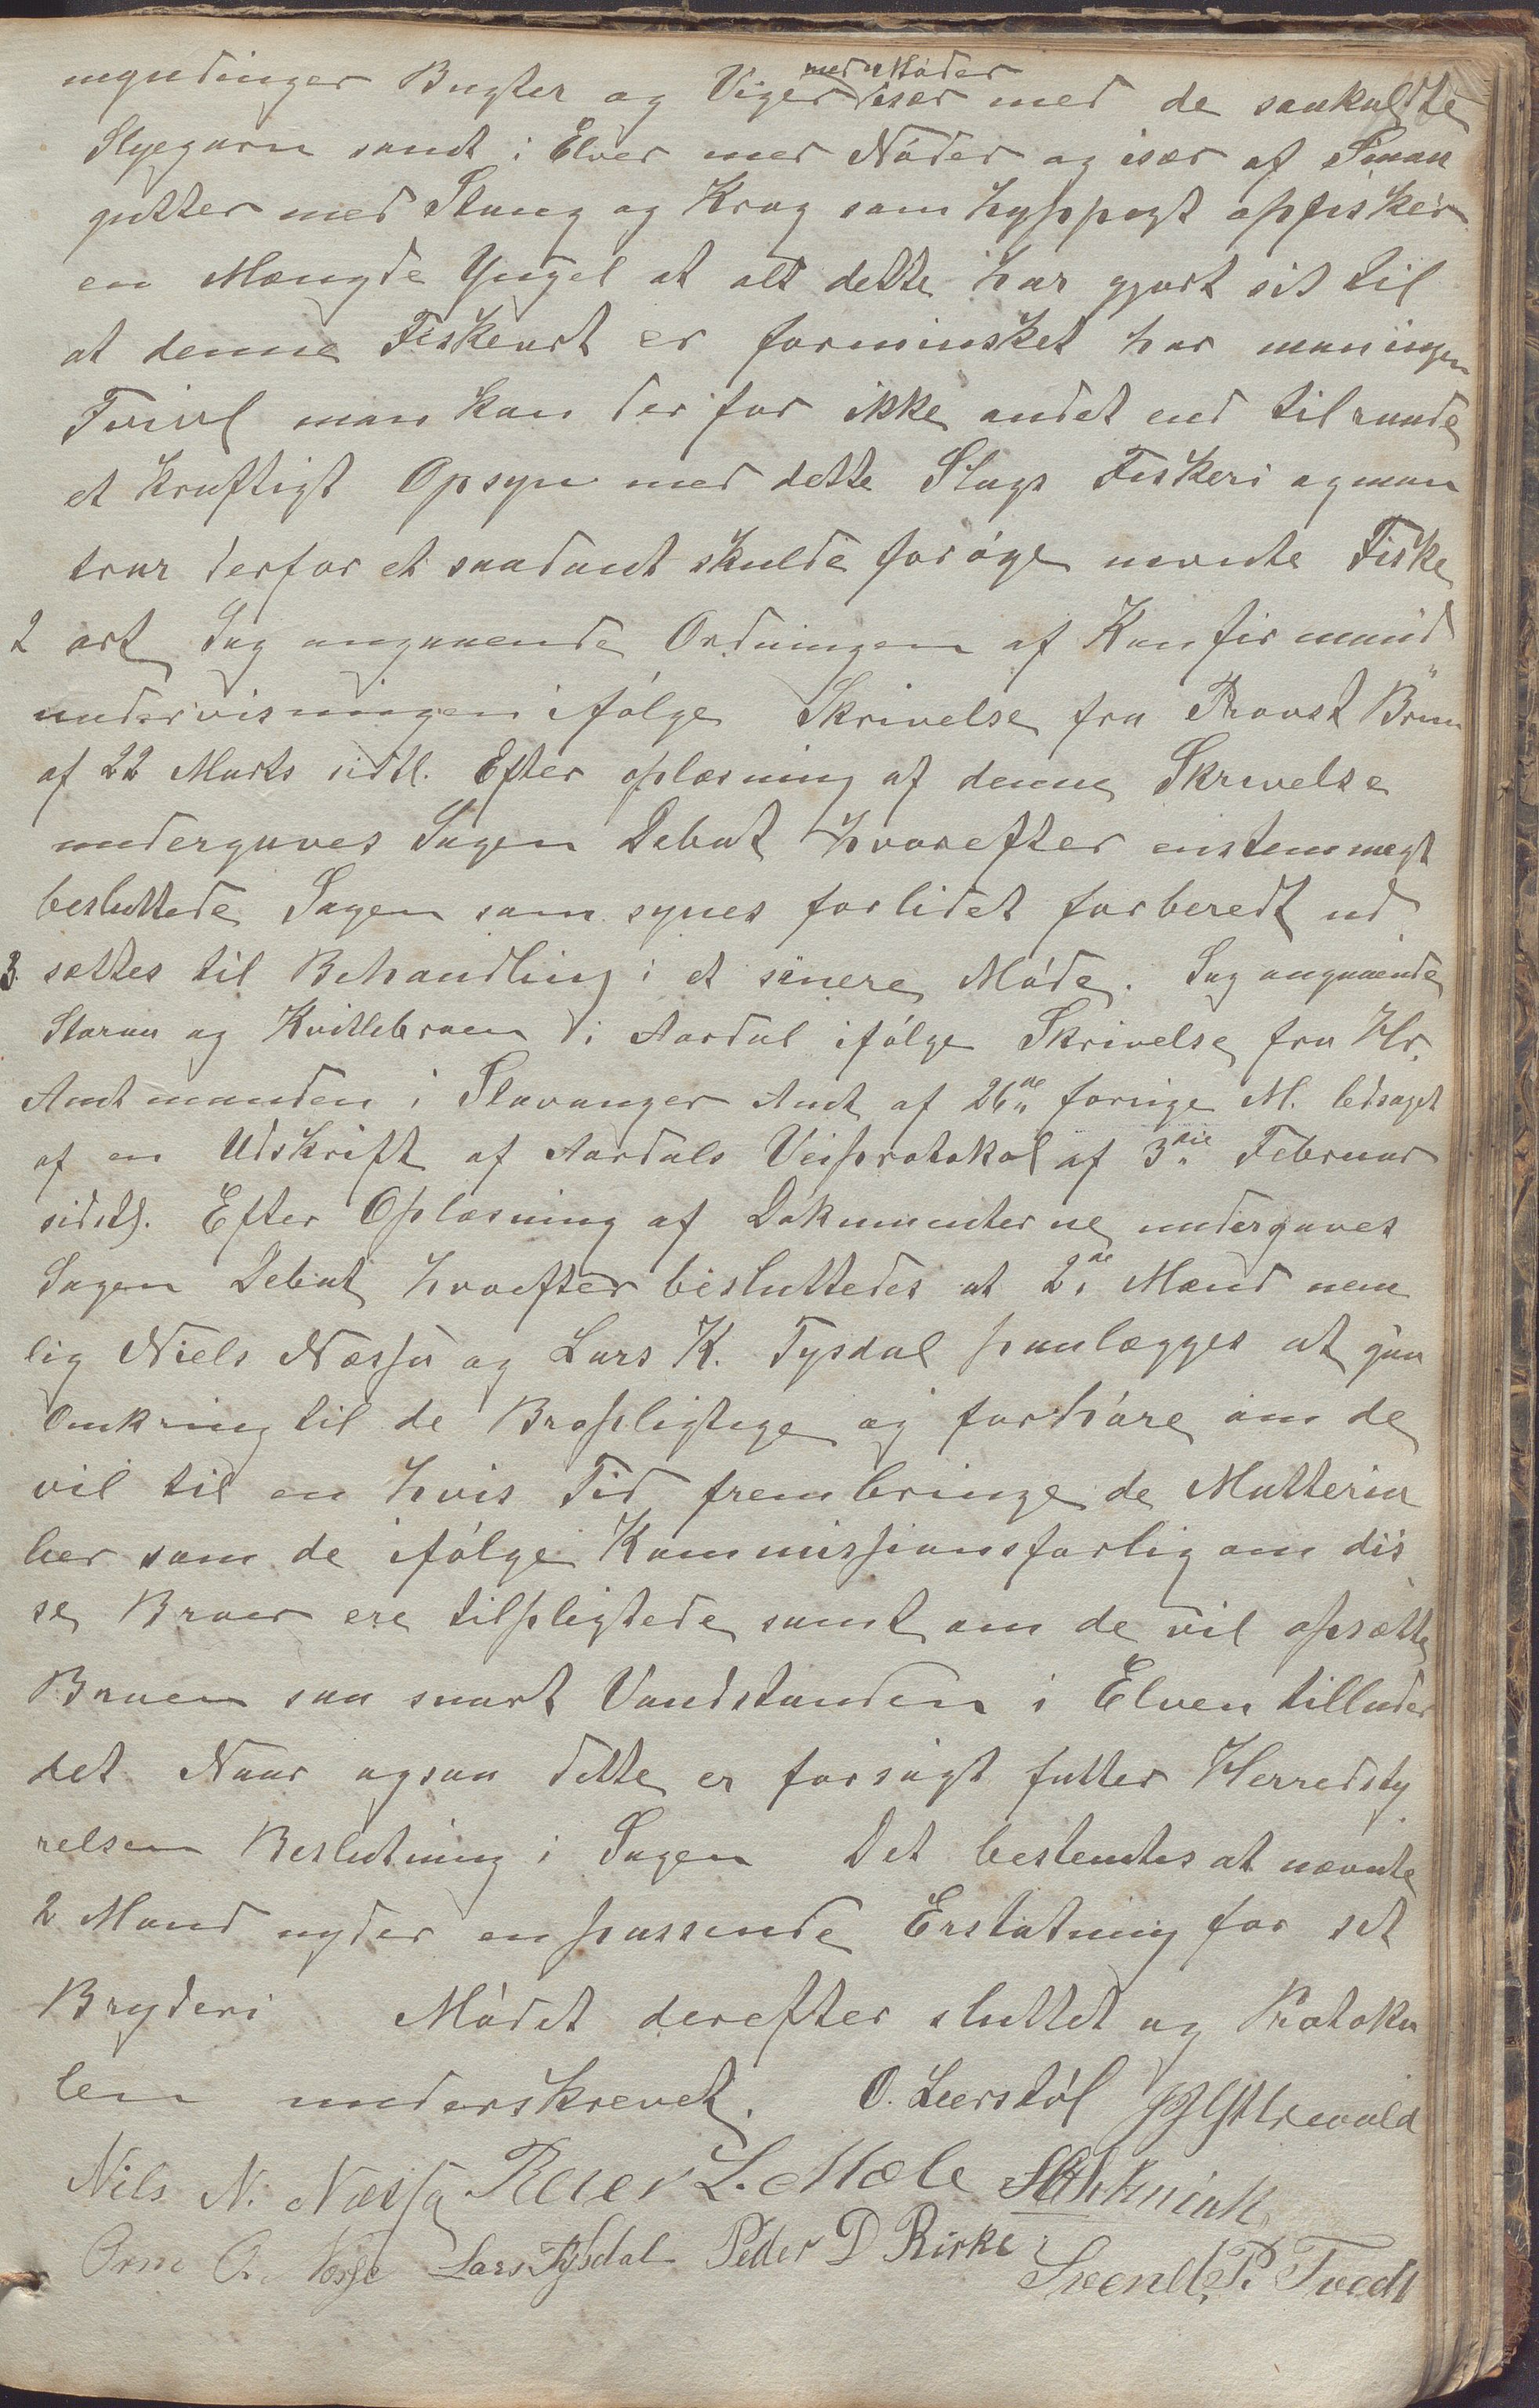 mundinger Bugter og Viger med Nóder især med de saakaldte
Slyegarn samt i Elver med Nóder og især af Smaa
gutter med Stang og Krog som hyppegt opfisker
en Mængde Yngel at alt dette har gjort sit til
at denne Fiskeart er forminsket har man ingen
Tvivl man kan der for ikke andet end tilraade
et kraftigt Opsyn med dette Slags Fiskeri og man
tror derfor et saadant skulde forøge nevnte Fiske
2 art Sag angaaende Ordningen af Konfirmand
undervisningen ifølge Skrivelse fra Provst Brun
af 22 Marts sidtl. Efter oplæsning af denne Skrivelse
undergaves Sagen Debat hvorefter enstemmegt
besluttede Sagen som synes forlidet forberedt ud
3. sættes til Behandling i et sinere Møde. Sag angaaende
Storaa og Kvitlebroen i Aardal ifølge Skrivelse fra Hr.
Amtmanden i Stavanger Amt af 26de forrige M. ledsaget
af en Udskrift af Aardals Veiprotokol af 3die Februar
sidstl. Efter Oplæsning af Dokumenterne undergaves
Sagen Debat hvoefter besluttedes at 2de Mænd nem
lig Niels Næssa og Lars K. Tysdal paalægges at gaa
omkring til de Bropligtige og forhøre om de
vil til en hvis Tid frembringe de Matteria
lier som de ifølge Kommissionsforlig om dis
se Broer ere tilpligtede samt om de vil opsætte
Broen saa snart Vandstanden i Elven tillader
det Naar ogsaa dette er forsøgt fatter Herredsty
relsen Beslutning i Sagen Det bestemtes at nævnte
2 Mand nyder en passende Erstatning for sit
Bryderi Mødet derefter sluttet og Protoko
len underskrevet. O. Leerstøl
Nils N. Næssa Peder L. Mæle
Orm O. Lars Tysdal Peder D Rirke
Svend P. Tvedt